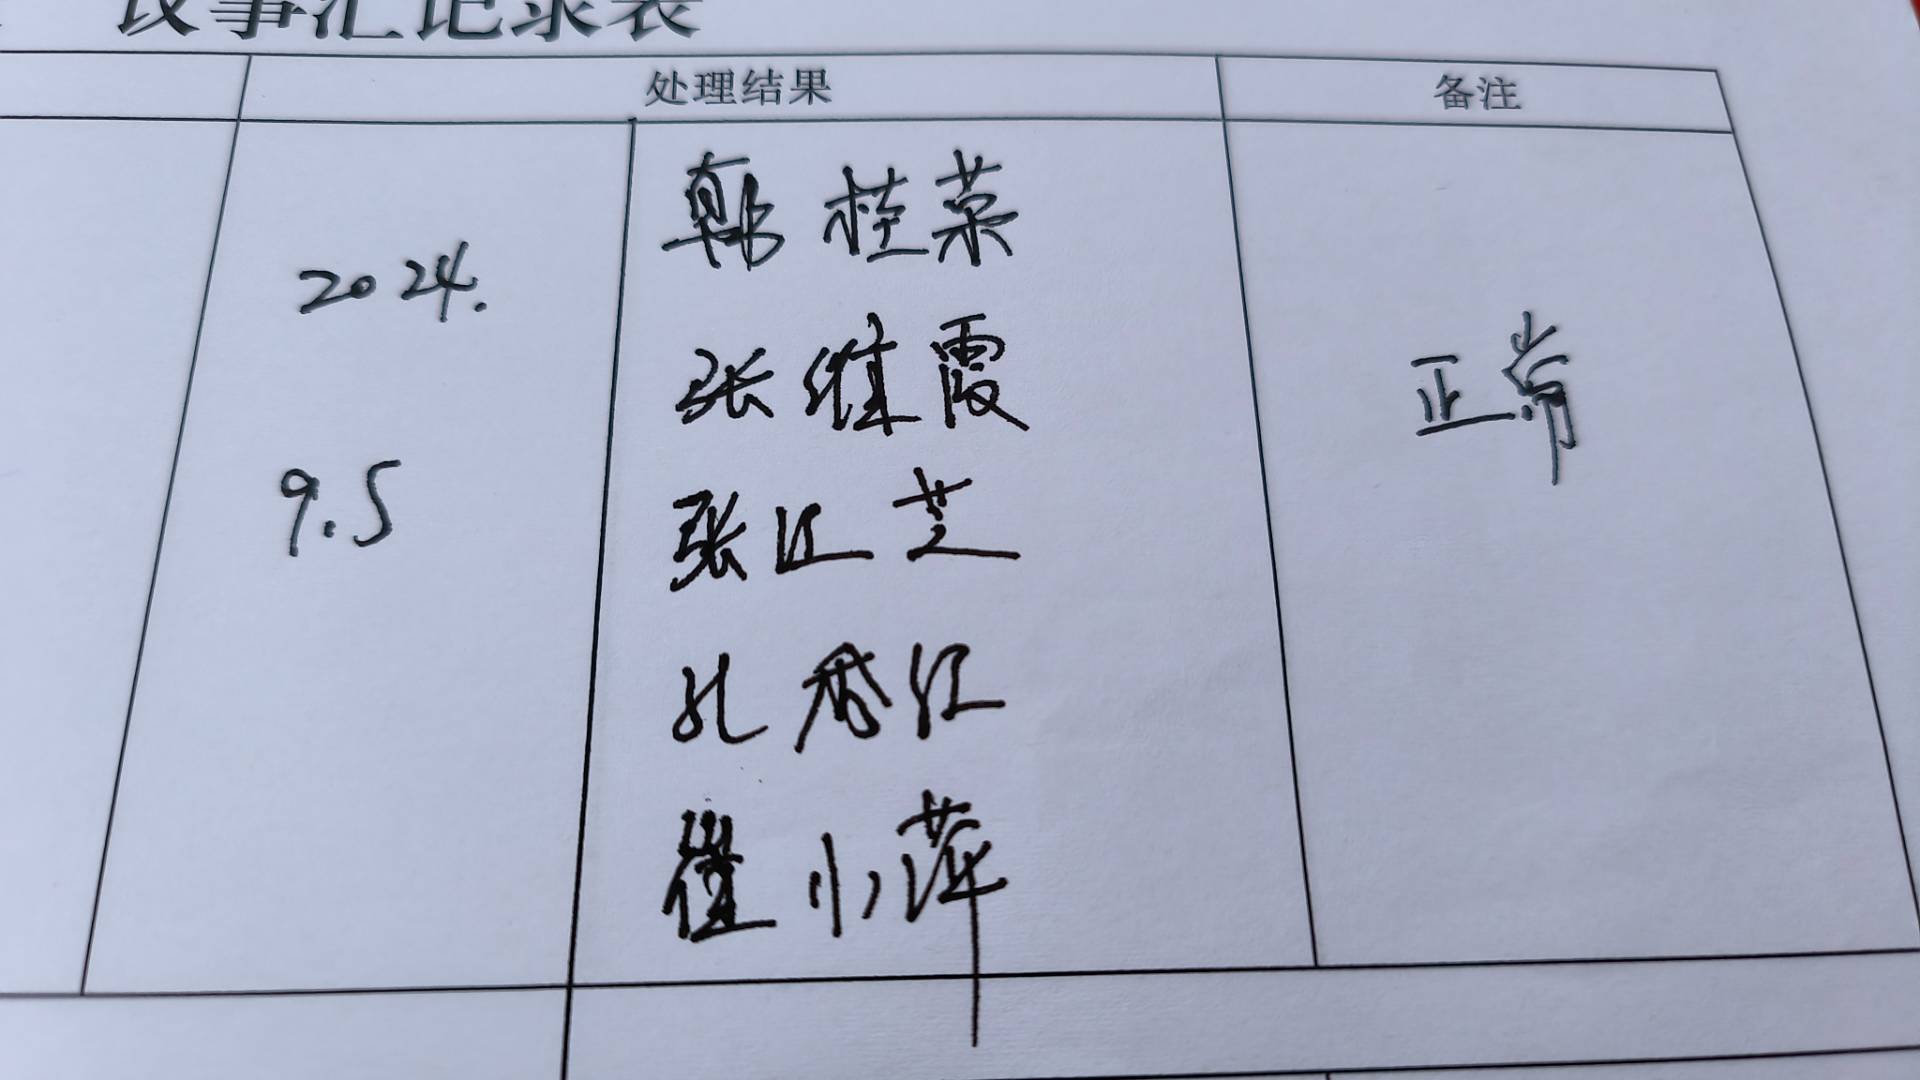 议事汇记录表
处理结果
备注
2024.
9.5
韩桂荣
张继霞
张江芝
孔香红
崔小萍
正常